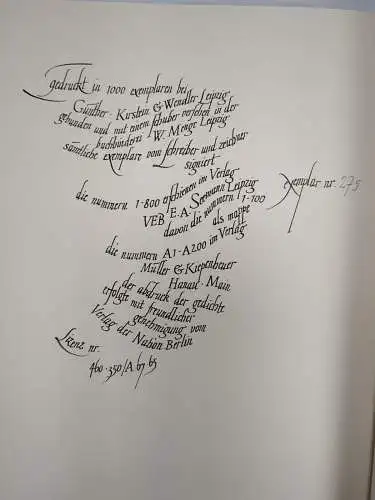 gedruckt in 1000 exemplaren bei
Günther · Kirstein & Wendler Leipzig
gebunden und mit einem schuber versehen in der
buchbinderei W. Menge Leipzig
sämtliche exemplare vom schreiber und zeichner
signiert
die nummern 1-800 erschienen im Verlag
VEB E.A. Seemann Leipzig
davon die nummern 1-100
als mappe
die nummern A1-A200 im Verlag
Müller & Kiepenheuer
Hanau · Main
der abdruck der gedichte
erfolgte mit freundlicher
genehmigung vom
Verlag der Nation Berlin
Lizenz nr.
460·350/A 67 65
exemplar nr. 275